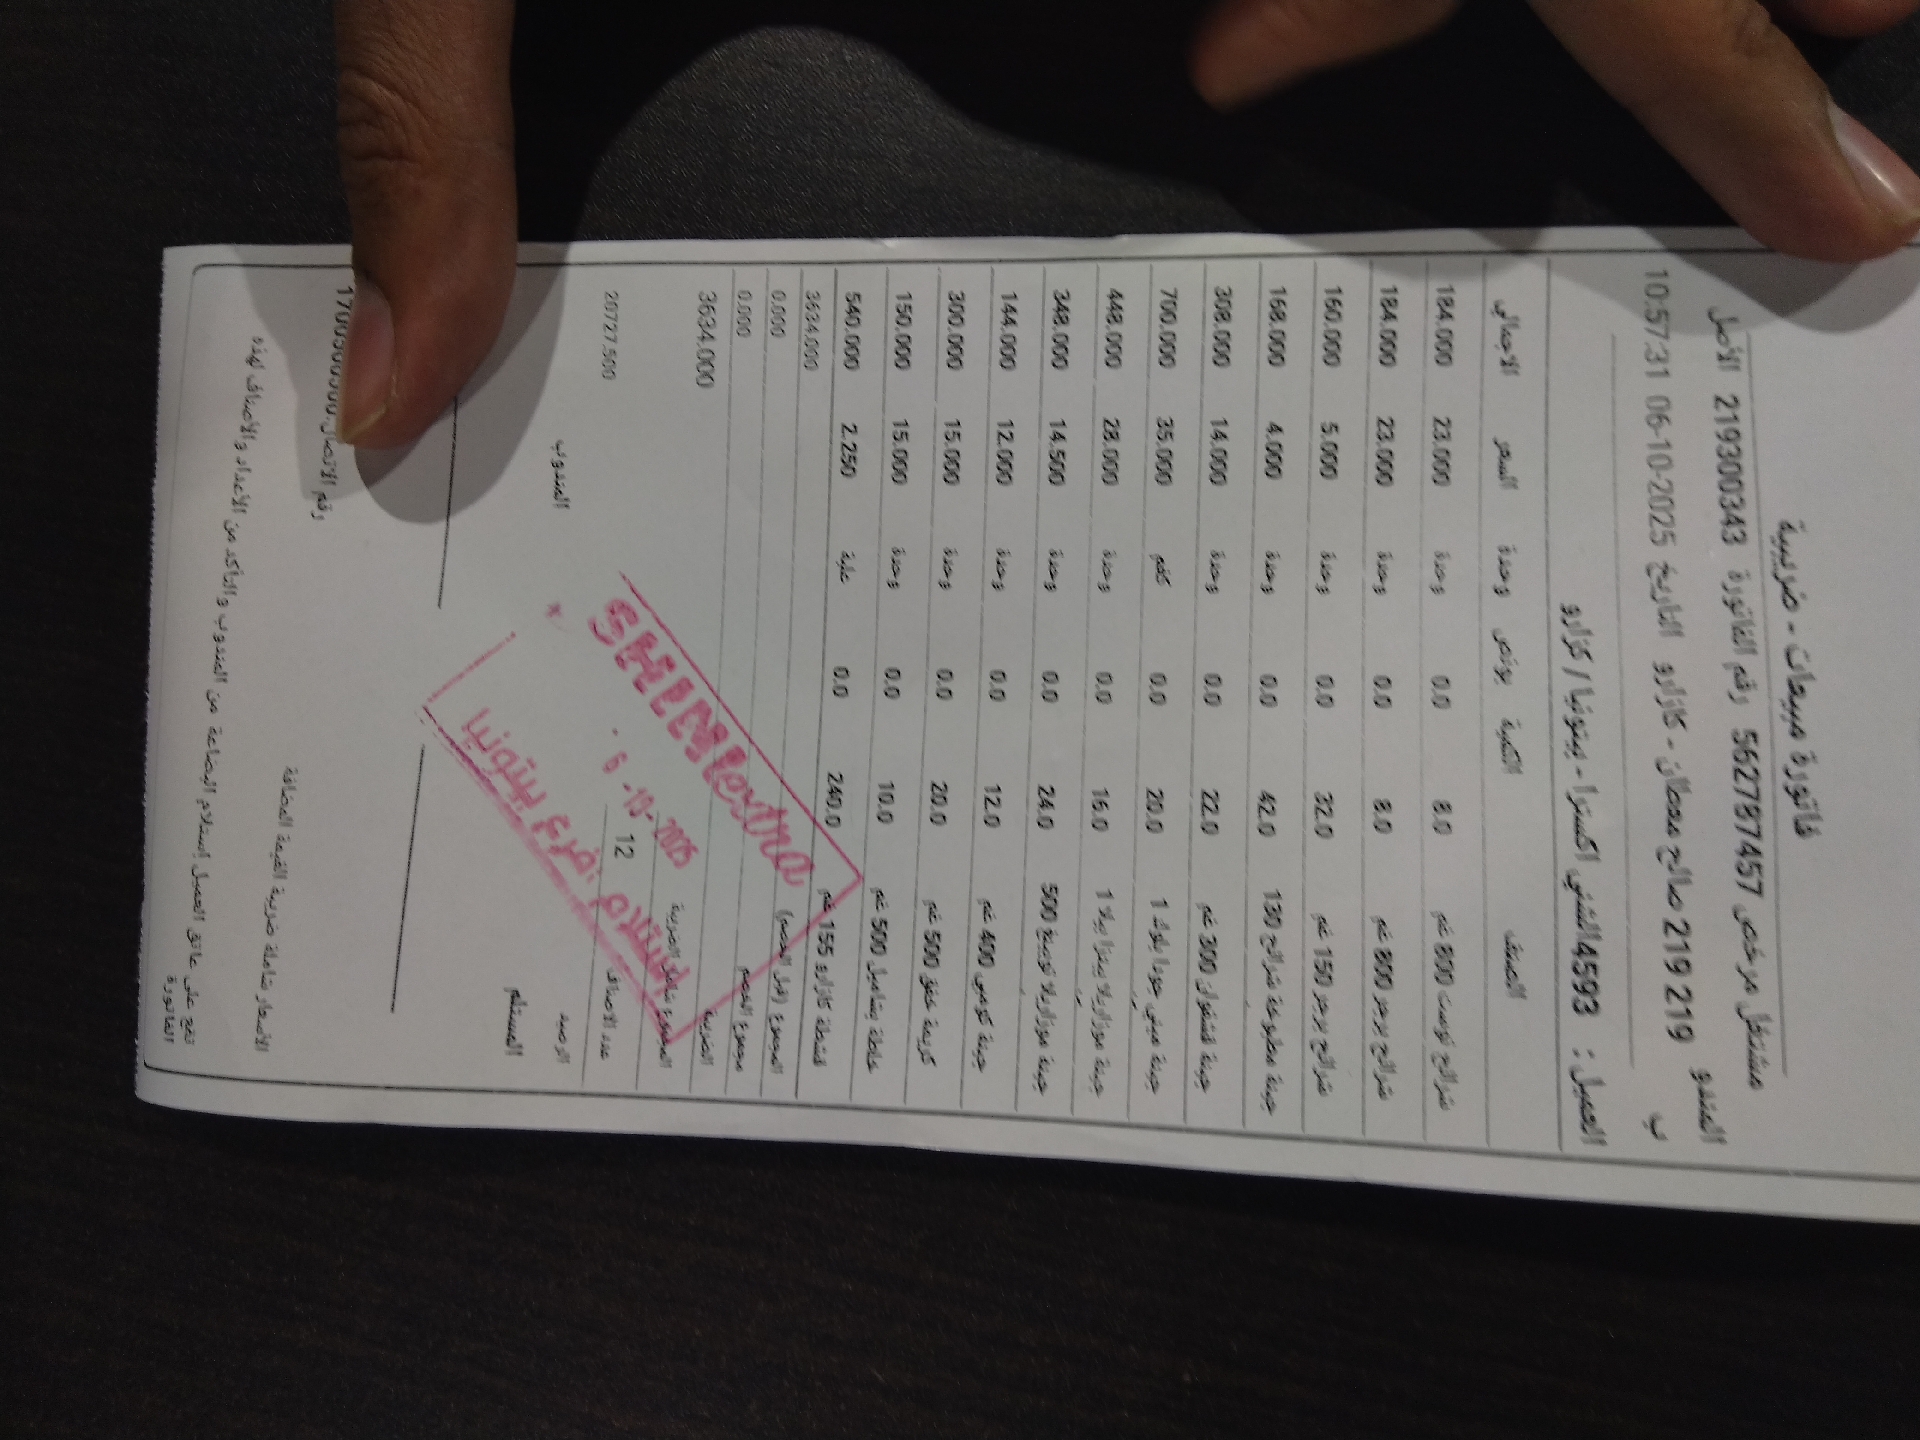 فاتورة مبيعات - ضريبية
مشتغل مرخص 562787457 رقم الفاتورة 219300343 الأصل
المندوب 219 219 صالح معطان - كازارو التاريخ 2025-10-06 10:57:31
العميل : 4593الشني اكسترا - بيتونيا / كزارو
الصنف الكمية بونص وحدة السعر الاجمالي
شرائح توست 800 غم 8.0 0.0 وحدة 23.000 184.000
شرائح برجر 800 غم 8.0 0.0 وحدة 23.000 184.000
شرائح برجر 150 غم 32.0 0.0 وحدة 5.000 160.000
جبنة مطبوخة شرائح 130 42.0 0.0 وحدة 4.000 168.000
جبنة قشقوان 300 غم 22.0 0.0 وحدة 14.000 308.000
جبنة ميني جودا بلوك 1 20.0 0.0 كغم 35.000 700.000
جبنة موزاريلا بيتزا بيلا 1 16.0 0.0 وحدة 28.000 448.000
جبنة موزاريلا توسيع 500 24.0 0.0 وحدة 14.500 348.000
جبنة كومبي 400 غم 12.0 0.0 وحدة 12.000 144.000
كريمة خفق 500 غم 20.0 0.0 وحدة 15.000 300.000
خلطة بشاميل 500 غم 10.0 0.0 وحدة 15.000 150.000
قشطة كازارو 155 غم 240.0 0.0 علبة 2.250 540.000
المجموع (قبل الخصم) 3634.000
مجموع الخصم 0.000
الضريبة 0.000
المجموع شامل الضريبة 3634.000
عدد الاصناف 12
الرصيد 20727.500
المستلم المندوب
SHINI extra
6 -10- 2025
استلام فرع بيتونيا
الأسعار شاملة ضريبة القيمة المضافة
رقم الاتصال:
تقع على عاتق العميل إستلام البضاعة من المندوب والتأكد من الاعداد والاصناف لهذه
الفاتورة